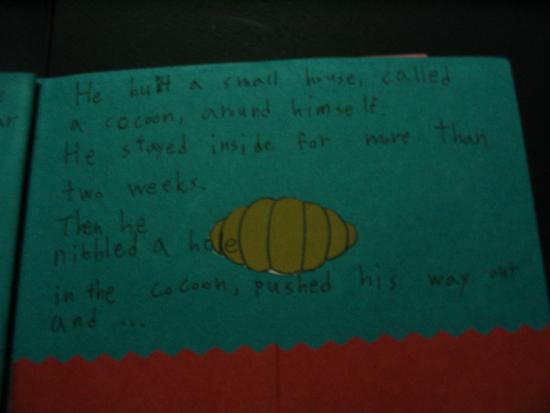 He built a small house, called
a cocoon, around himself.
He stayed inside for more than
two weeks.
Then he
nibbled a hole
in the cocoon, pushed his way out
and ...